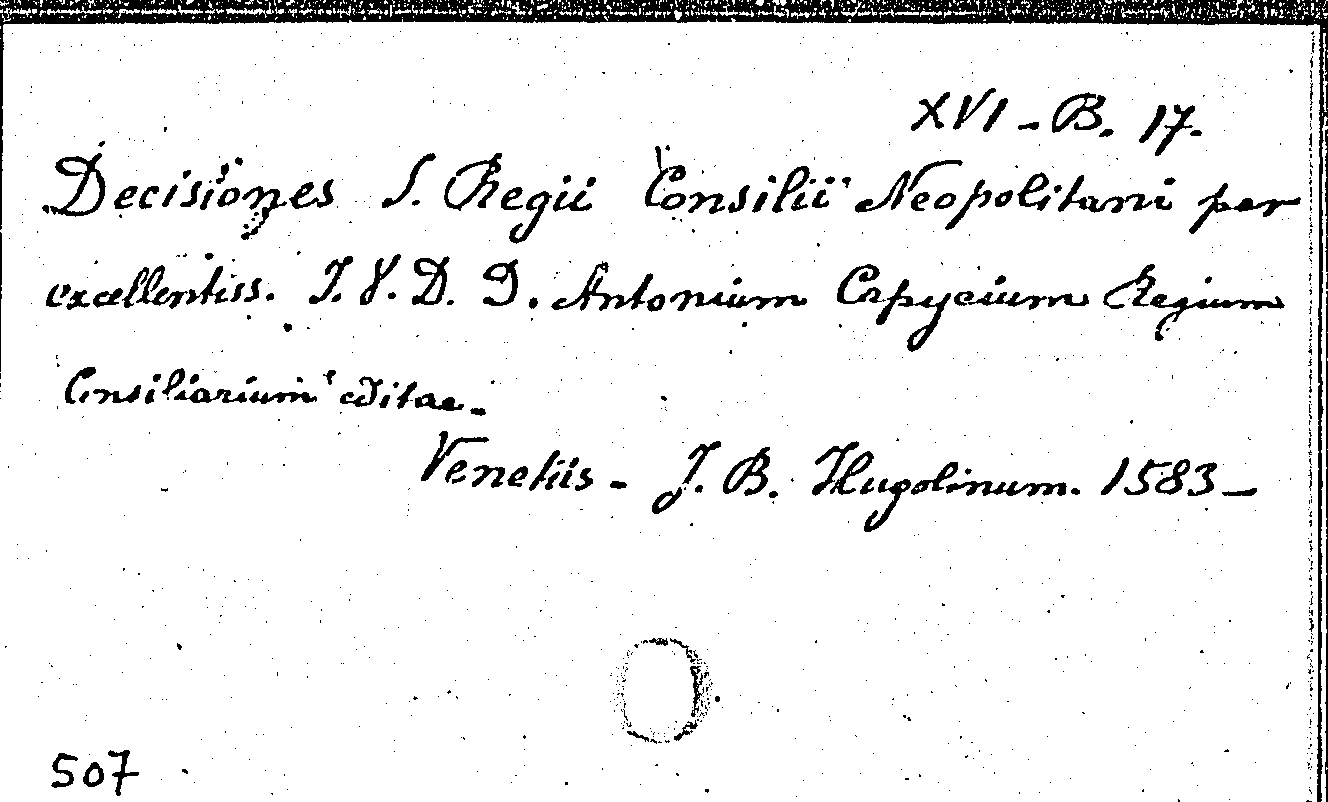 XVI - B. 17.
Decisiones S. Regii Consilii Neopolitani per
excellentiss. J. V. D. D. Antonium Capycium Regium
Consiliarium editae -
Venetiis - J. B. Hugolinum. 1583 -
507